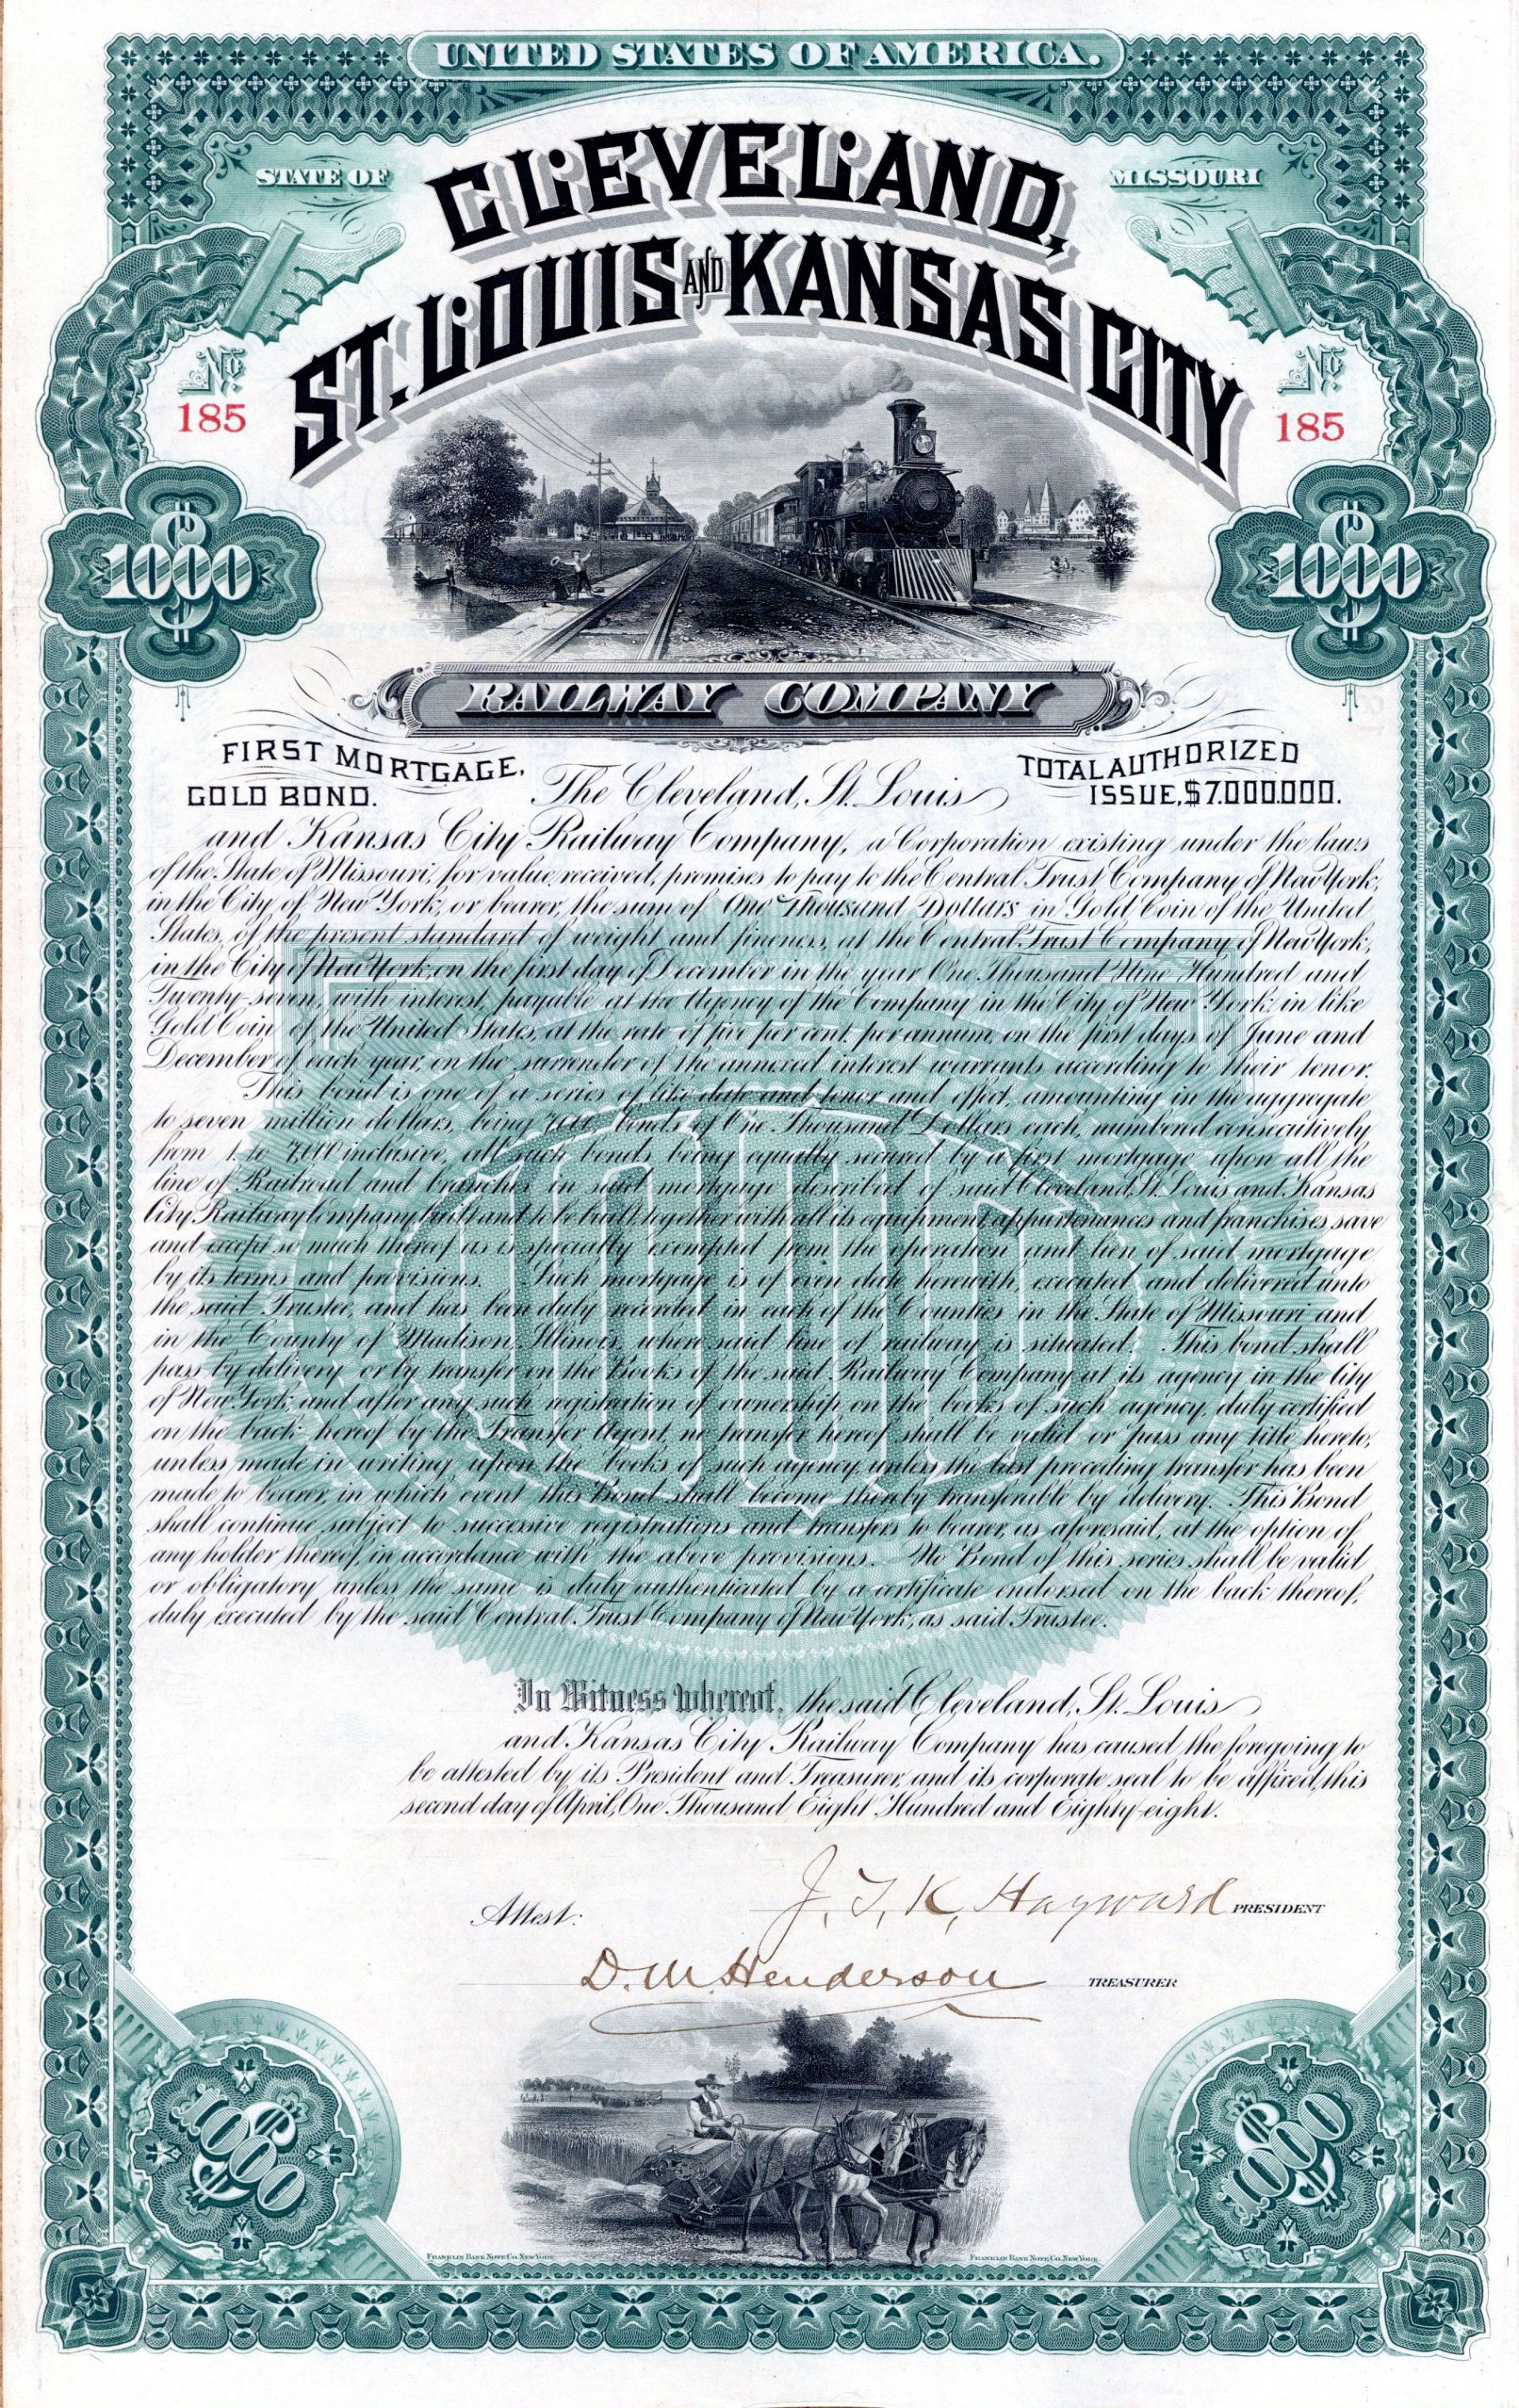 UNITED STATES OF AMERICA.
STATE OF MISSOURI
CLEVELAND,
ST. LOUIS AND KANSAS CITY
No 185
No 185
$1000
$1000
RAILWAY COMPANY
FIRST MORTGAGE,
GOLD BOND.
TOTAL AUTHORIZED
ISSUE, $7.000.000.
The Cleveland, St. Louis
and Kansas City Railway Company, a Corporation existing under the laws
of the State of Missouri, for value received, promises to pay to the Central Trust Company of New York,
in the City of New York, or bearer, the sum of One Thousand Dollars in Gold Coin of the United
States, of the present standard of weight and fineness, at the Central Trust Company of New York,
in the City of New York, on the first day of December in the year One Thousand Nine Hundred and
Twenty-seven, with interest, payable at the Agency of the Company in the City of New York, in like
Gold Coin of the United States, at the rate of five per cent. per annum, on the first days of June and
December of each year, on the surrender of the annexed interest warrants according to their tenor.
This bond is one of a series of like date and tenor and effect, amounting in the aggregate
to seven million dollars, being 7000 bonds of One Thousand Dollars each, numbered consecutively
from 1 to 7000 inclusive, all such bonds being equally secured by a first mortgage upon all the
line of Railroad and branches in said mortgage described of said Cleveland, St. Louis and Kansas
City Railway Company built and to be built, together with all its equipment appurtenances and franchises save
and except so much thereof as is specially exempted from the operation and lien of said mortgage
by its terms and provisions. Such mortgage is of even date herewith, executed and delivered unto
the said Trustee, and has been duly recorded in each of the Counties in the State of Missouri and
in the County of Madison, Illinois, where said line of railway is situated. This bond shall
pass by delivery or by transfer on the Books of the said Railway Company at its agency in the City
of New York, and after any such registration of ownership on the books of such agency, duly certified
on the back hereof by the Transfer Agent, no transfer hereof shall be valid or pass any title hereto,
unless made in writing upon the books of such agency, unless the last preceding transfer has been
made to bearer, in which event this Bond shall become thereby transferable by delivery. This Bond
shall continue subject to successive registrations and transfers to bearer, as aforesaid, at the option of
any holder thereof, in accordance with the above provisions. No Bond of this series shall be valid
or obligatory unless the same is duly authenticated by a certificate endorsed on the back thereof,
duly executed by the said Central Trust Company of New York, as said Trustee.
In Witness whereof, the said Cleveland, St. Louis
and Kansas City Railway Company has caused the foregoing to
be attested by its President and Treasurer, and its corporate seal to be affixed, this
second day of April, One Thousand Eight Hundred and Eighty-eight.
Attest:
J. T. K. Hayward PRESIDENT
D. M. Henderson TREASURER
$1000
$1000
FRANKLIN BANK NOTE CO. NEW YORK
FRANKLIN BANK NOTE CO. NEW YORK
1000